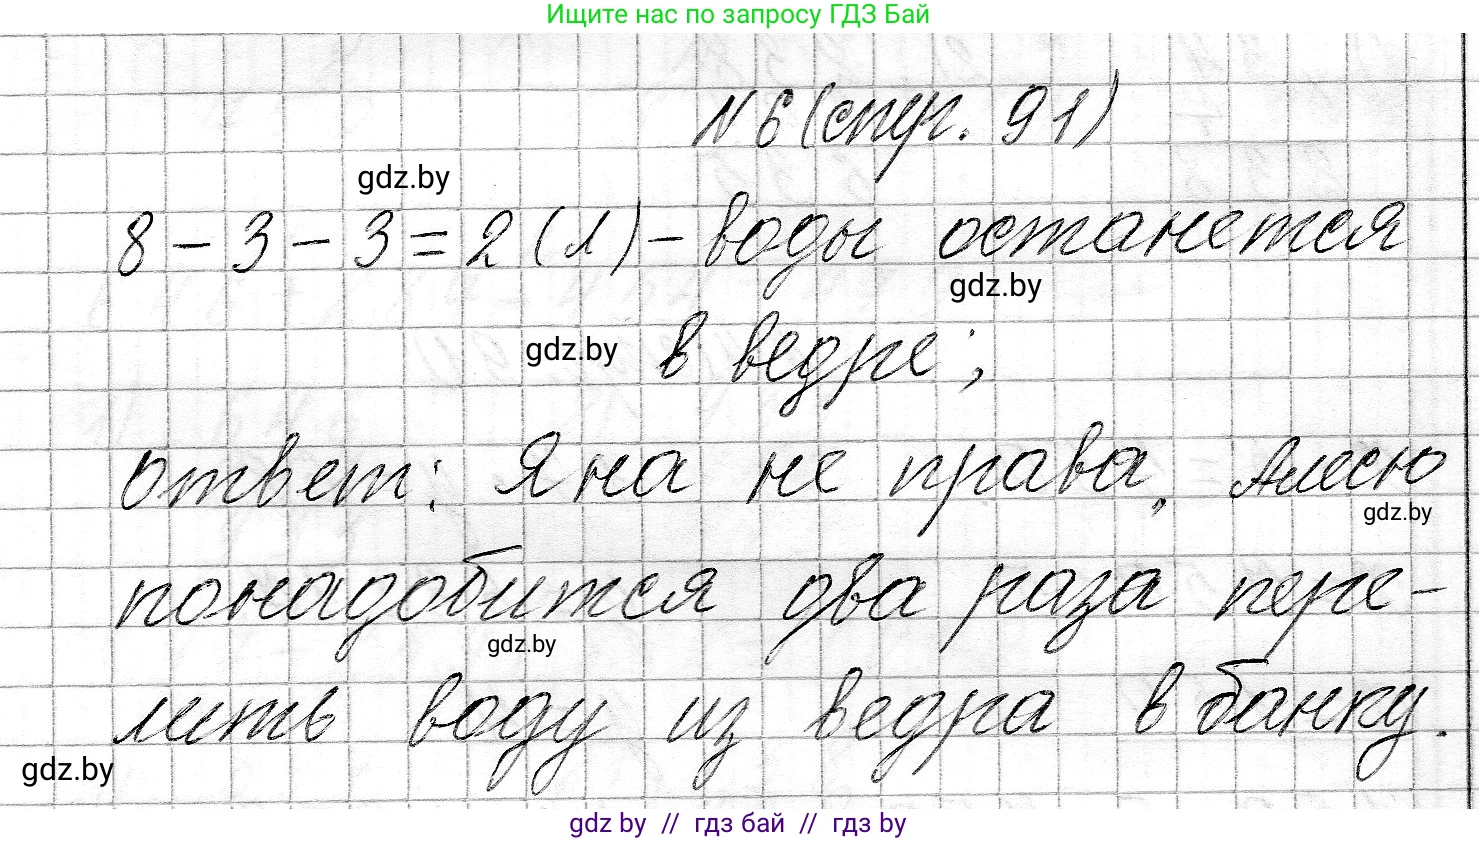 Ищите нас по запросу ГДЗ Бай
N 6 (стр. 91)
gdz.by
8 - 3 - 3 = 2 (л) - воды останется
gdz.by
gdz.by
в ведре;
ответ: Яна не права, Алесю
gdz.by
понадобится два раза пере-
gdz.by
лить воду из ведра в банку.
gdz.by
gdz by // гдз бай // гдз by